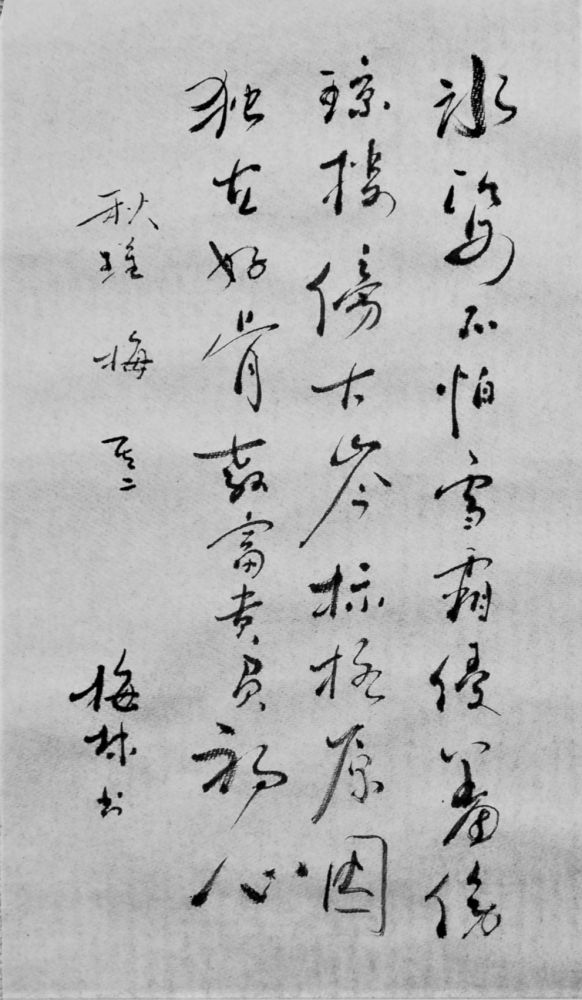 冰姿不怕雪霜侵羞傍
琼楼傍古岑标格原因
独立好肯教富贵负初心
秋瑾 梅 其二
梅林书